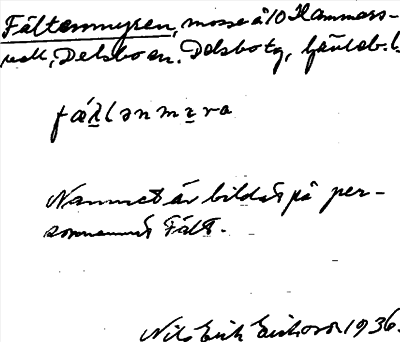 Fältenmyren, mosse å 10 Hammars-
vall, Delsbo sn. Delsbo tg, Gävleb. l.
Namnet är bildat på per-
sonnamnet Fält.
Nils Erik Eriksson 1936.